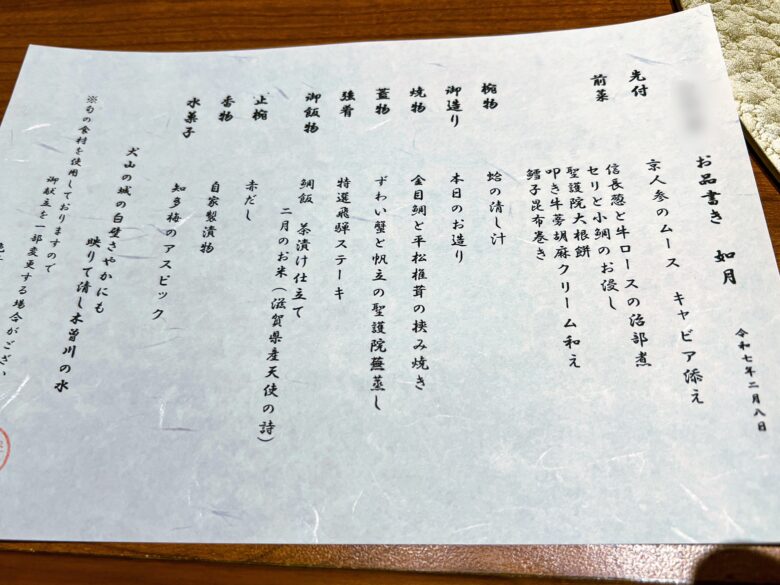 お品書き 如月
令和七年二月八日
先付 京人参のムース キャビア添え
前菜 信長葱と牛ロースの治部煮
セリと小鯛のお浸し
聖護院大根餅
叩き牛蒡胡麻クリーム和え
鱈子昆布巻き
椀物 蛤の清し汁
御造り 本日のお造り
焼物 金目鯛と平松椎茸の挟み焼き
蓋物 ずわい蟹と帆立の聖護院蕪蒸し
強肴 特選飛騨ステーキ
御飯物 鯛飯 茶漬け仕立て
二月のお米(滋賀県産天使の詩)
止椀 赤だし
香物 自家製漬物
水菓子 知多梅のアスピック
犬山の城の白壁さやかにも
映りて清し木曽川の水
※旬の食材を使用しておりますので
御献立を一部変更する場合がござい